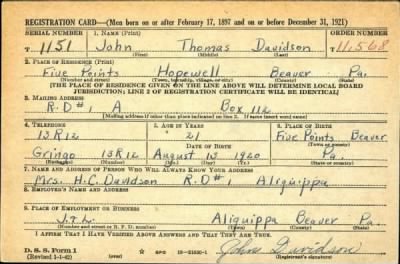 REGISTRATION CARD—(Men born on or after February 17, 1897 and on or before December 31, 1921)
SERIAL NUMBER 1. NAME (Print) ORDER NUMBER
T 1151 John Thomas Davidson 11,568
(First) (Middle) (Last)
2. PLACE OF RESIDENCE (Print)
Five Points Hopewell Beaver Pa.
(Number and street) (Town, township, village or city) (County) (State)
[THE PLACE OF RESIDENCE GIVEN ON THE LINE ABOVE WILL DETERMINE LOCAL BOARD
JURISDICTION; LINE 2 OF REGISTRATION CERTIFICATE WILL BE IDENTICAL]
3. MAILING ADDRESS
R.D #1 A Box 112
[Mailing address if other than place indicated on line 2. If same insert word same]
4. TELEPHONE 5. AGE IN YEARS 6. PLACE OF BIRTH
13R12 21 Five Points Beaver
DATE OF BIRTH (Town or county)
Gringo 13R12 August 13 1920 Pa.
(Exchange) (Number) (Mo.) (Day) (Yr.) (State or country)
7. NAME AND ADDRESS OF PERSON WHO WILL ALWAYS KNOW YOUR ADDRESS
Mrs. H.C. Davidson R.D #1 Aliquippa
8. EMPLOYER'S NAME AND ADDRESS
9. PLACE OF EMPLOYMENT OR BUSINESS
Aliquippa Beaver Pa.
(Number and street or R. F. D. number) (Town) (County) (State)
I AFFIRM THAT I HAVE VERIFIED ABOVE ANSWERS AND THAT THEY ARE TRUE.
D. S. S. Form 1
(Revised 1-1-42) (over) GPO 16—21630-1 John Davidson
(Registrant's signature)